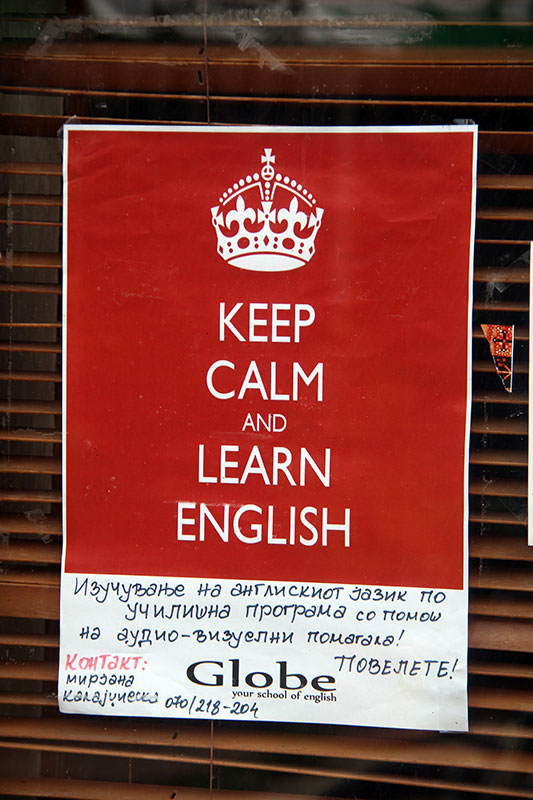 KEEP
CALM
AND
LEARN
ENGLISH
Изучување на англискиот јазик по
училишна програма со помош
на аудио-визуелни помагала!
Контакт:
ПОВЕЛЕТЕ!
мирјана
Globe
your school of english
070/218-204